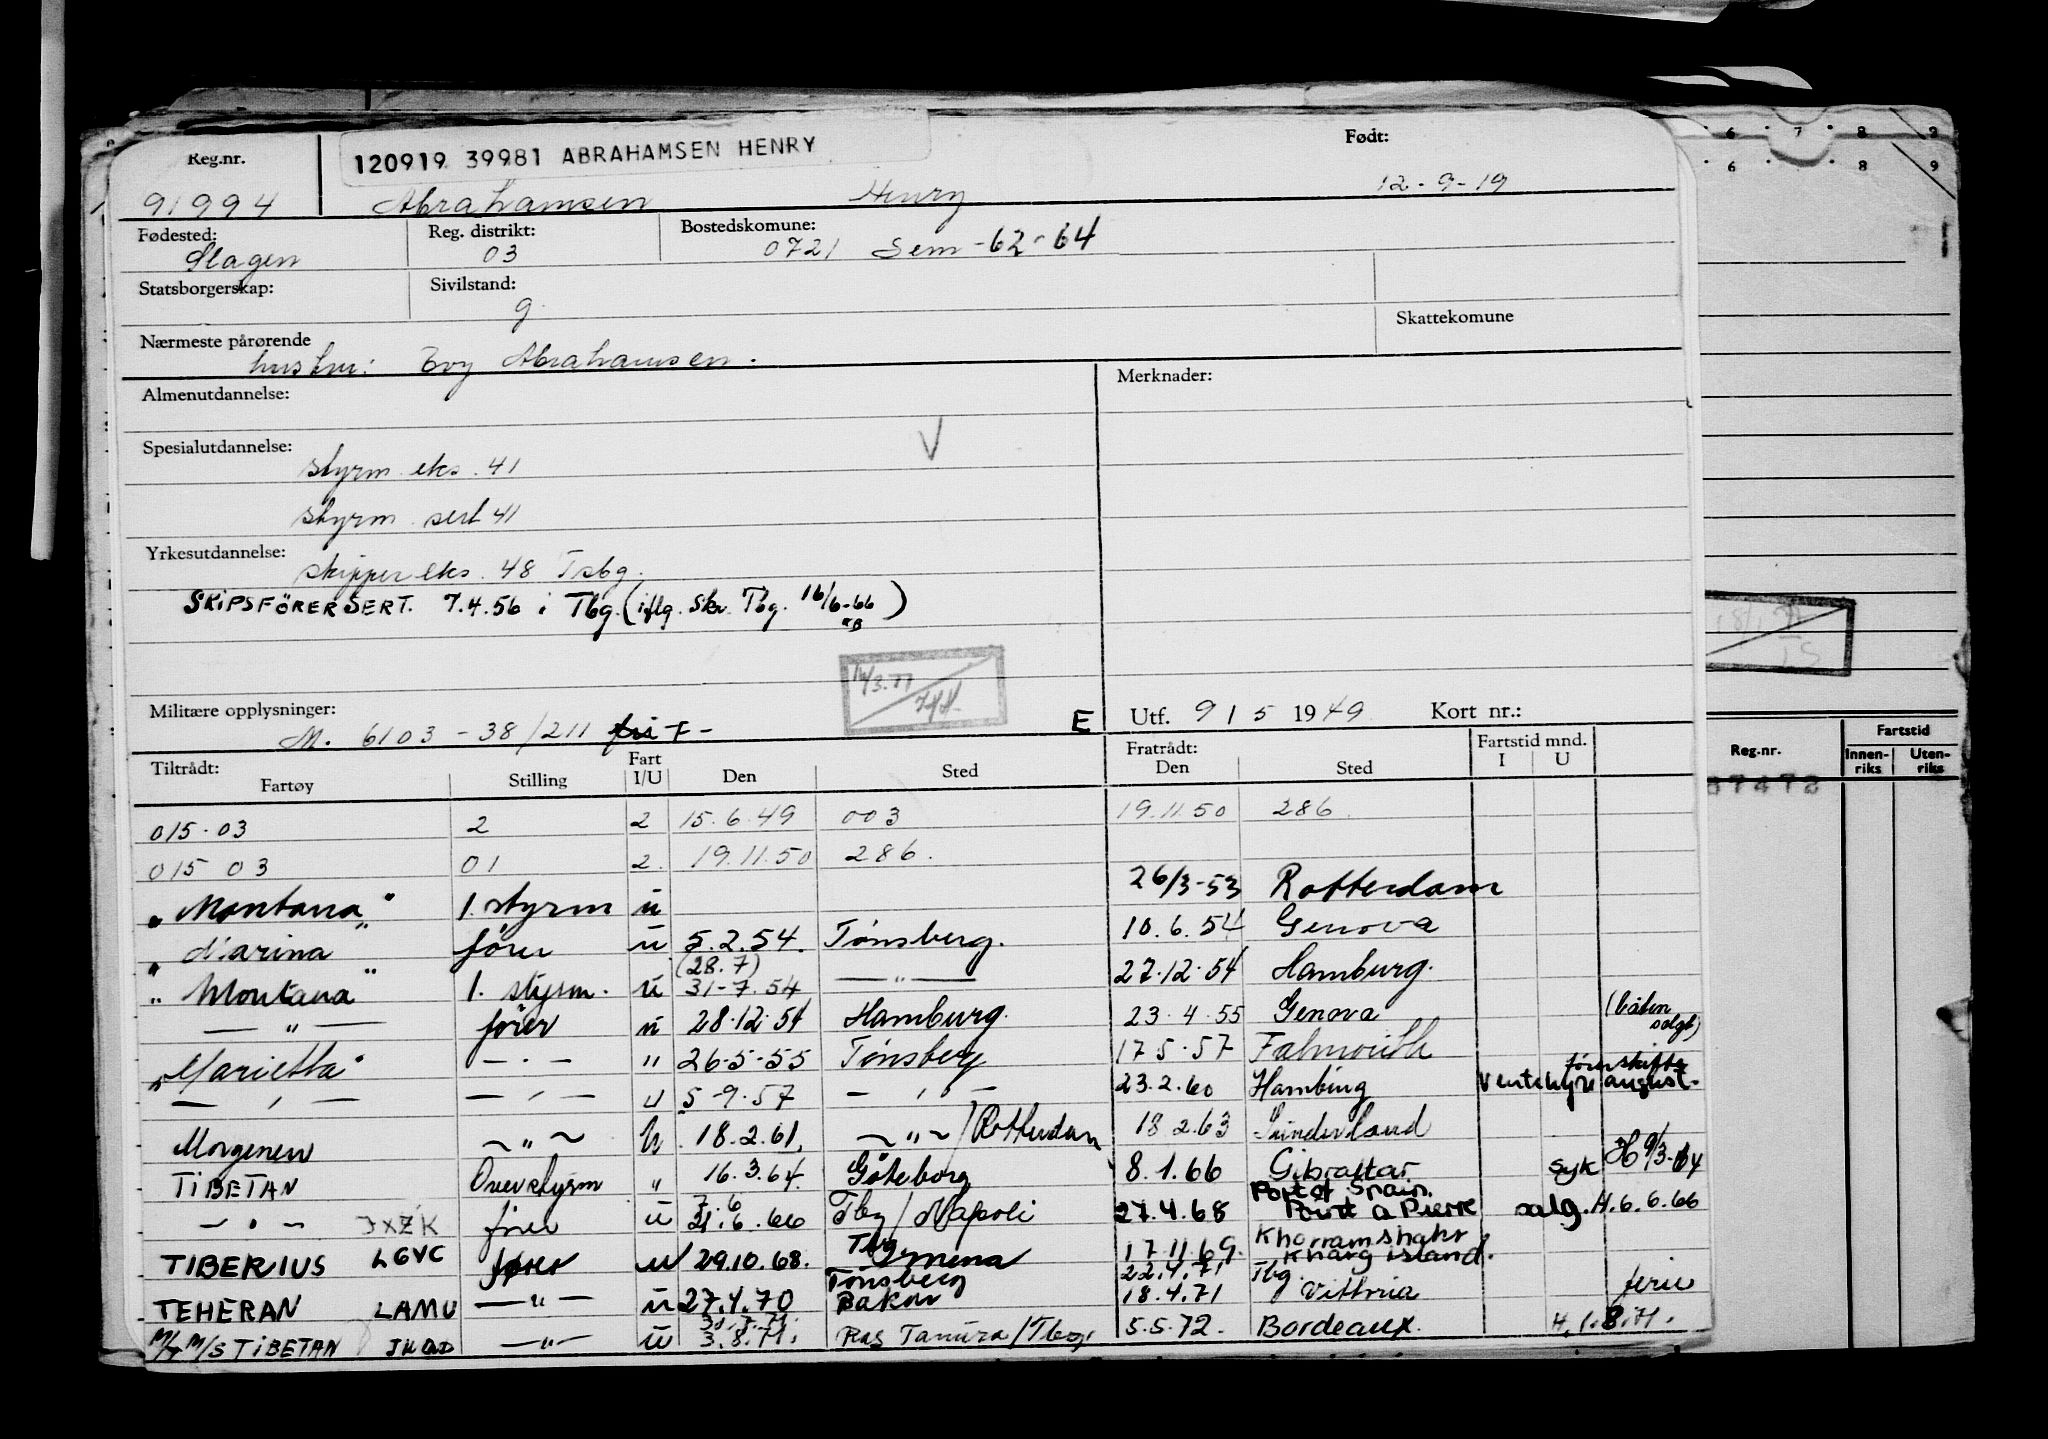 Reg.nr. 120919 39981 ABRAHAMSEN HENRY Født:
91994 Abrahamsen Henry 12-9-19
Fødested: Reg. distrikt: Bostedskomune:
Slagen 03 0721 Sem -62-64
Statsborgerskap: Sivilstand:
g.
Nærmeste pårørende Skattekomune
hustru: Evy Abrahamsen.
Almenutdannelse: Merknader:
Spesialutdannelse: V
styrm. eks. 41
styrm. sert 41
Yrkesutdannelse:
skipper eks. 48 Tsbg.
SKIPSFÖRERSERT. 7.4.56 i Tbg. (iflg. Skr. Tbg. 16/6-66)
Militære opplysninger: E Utf. 9 / 5 1949 Kort nr.:
M. 6103-38/211
Tiltrådt: Fart Fratrådt: Fartstid mnd.
Fartøy Stilling I/U Den Sted Den Sted I U
015.03 2 2 15.6.49 003 19.11.50 286.
015 03 01 2. 19.11.50 286.
"Montana" 1. styrm u 26/3-53 Rotterdam
"Marina" förer u 5.2.54. Tönsberg. 10.6.54 Genova
(28.7)
"Montana" 1. styrm. u 31-7.54 — " — 27.12.54 Hamburg.
— " — förer u 28.12.54 Hamburg. 23.4.55 Genova (båten solgt)
"Marietta" — " — " 26-5-55 Tönsberg 17.5.57 Falmouth
— " — — " — u 5-9-57 — " — 23.2.60 Hamburg
Morgenen — " — u 18.2.61. — " — /Rotterdam 18.2.63 Sunderland
TIBETAN Overstyrm " 16.3.64. Göteborg 8.1.66 Gibraltar syk H 9/3-64
— " — JXZK förer u 7.6 21.6.66 Tbg/Napoli 27.4.68 Port of Spain. Point a Pierre salg. H. 6.6.66
TIBERIUS LGVC förer u 29.10.68. Tbg mena 17.11.69. Khorramshahr Kharg island.
TEHERAN LAMU — " — u 27.1.70 Tönsberg Dakar 22.4.71 Tbg. 18.4.71 Vittoria ferie
M/T M/S TIBETAN — " — u 3.8.71. Ras Tanura/Tbg. 5.5.72. Bordeaux. H. 1.8.71.
6 7 8 9
6 8 9
Reg.nr. Fartstid
Innen-riks Uten-riks